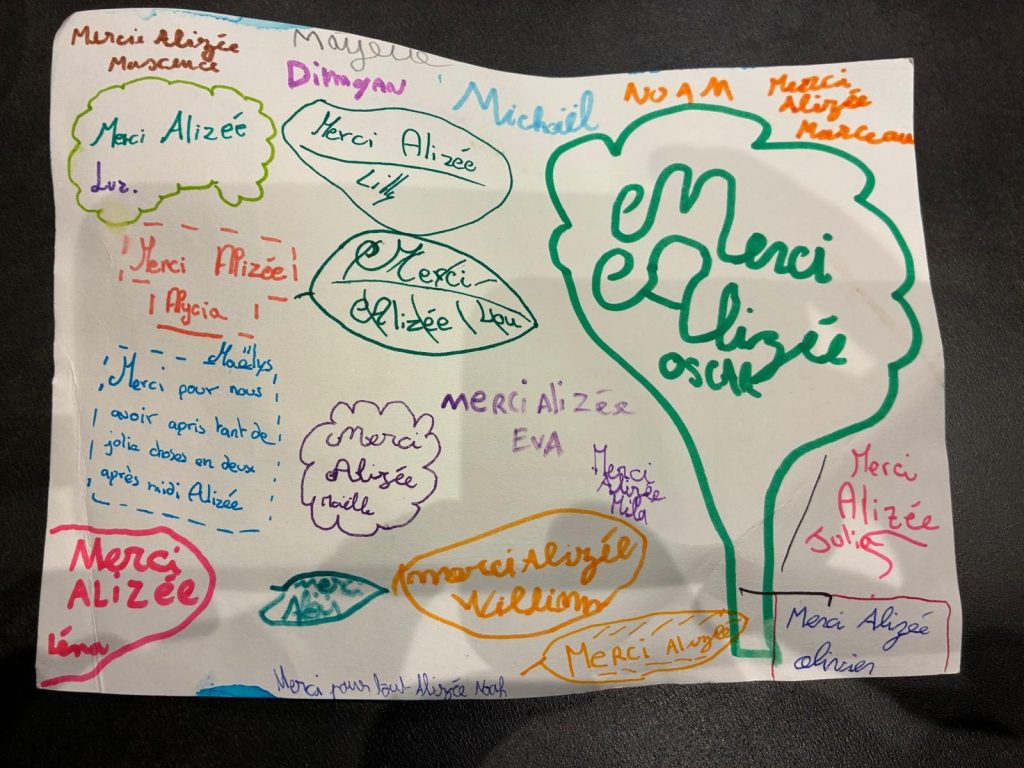 Mercie Alizée
Maxence
Mayelle
Dimagan
Michaël
NOAM
Merci
Alizée
Marceau
Merci Alizée
Luz.
Merci Alizée
Lilly
Merci
Alizée
OSCAR
Merci Alizée
Alycia
Merci
Alizée Lou
Maëlys
Merci pour nous
avoir apris tant de
jolie choses en deux
après midi Alizée
Merci
Alizée
Maëlle
MERCI Alizée
EVA
Merci
Alizée
Mila
Merci
Alizée
Julia
Merci
ALIZÉE
Léna
merci
merci Alizée
William
MERCI Alizée
Merci Alizée
olivier
Merci pour tout Alizée Noah